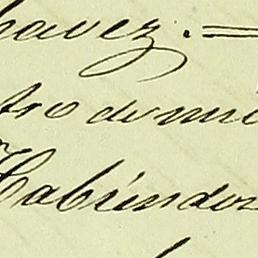 havez. =
tro de mi
Habiendo